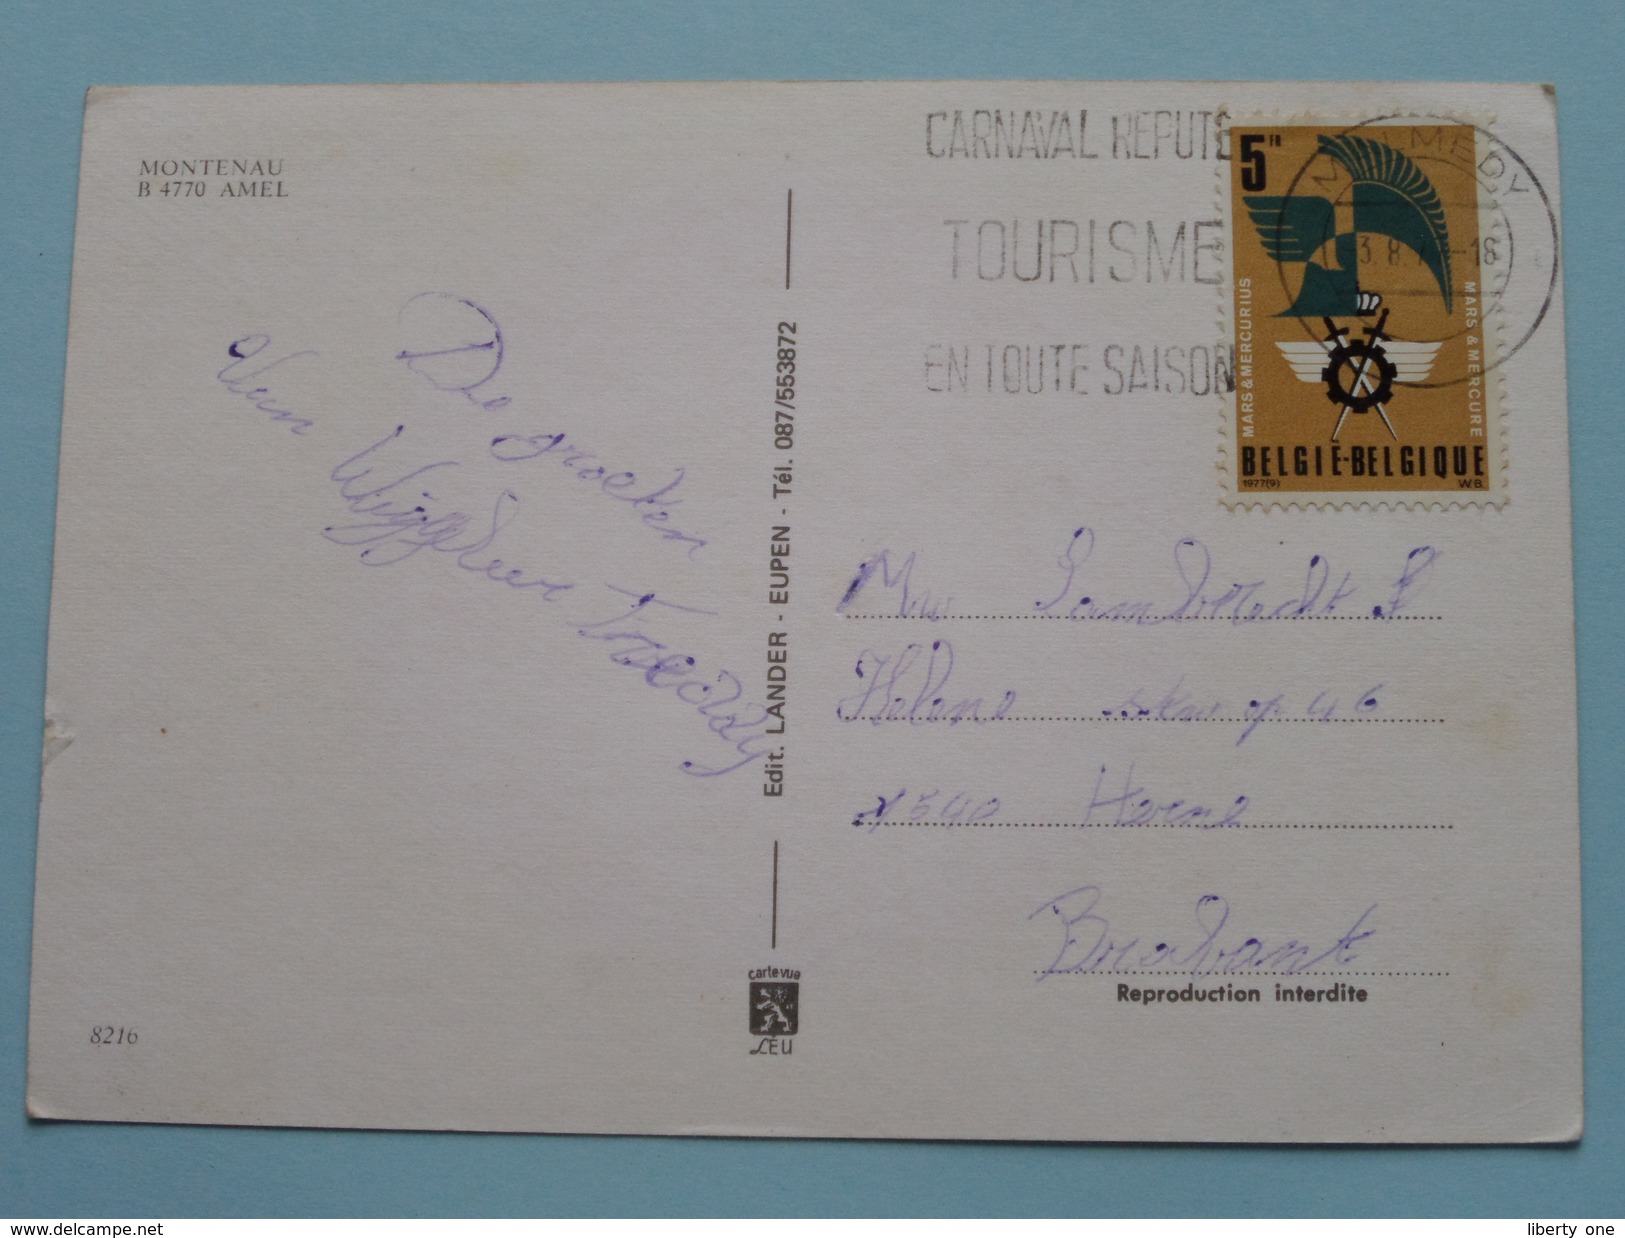 MONTENAU
B 4770 AMEL
De groeten
Van
Wiggeleer Freddy
8216
Edit. LANDER - EUPEN - Tél. 087/553872
carte vue
LÉU
CARNAVAL REPUTE
TOURISME
EN TOUTE SAISON
MALMEDY
3.8. -18
5 FR
MARS & MERCURIUS
MARS & MERCURE
BELGIË-BELGIQUE
1977(9) W.B.
Mw Lambrecht
Helene op 46
1540 Herne
Brabant
Reproduction interdite
www.delcampe.net
liberty one